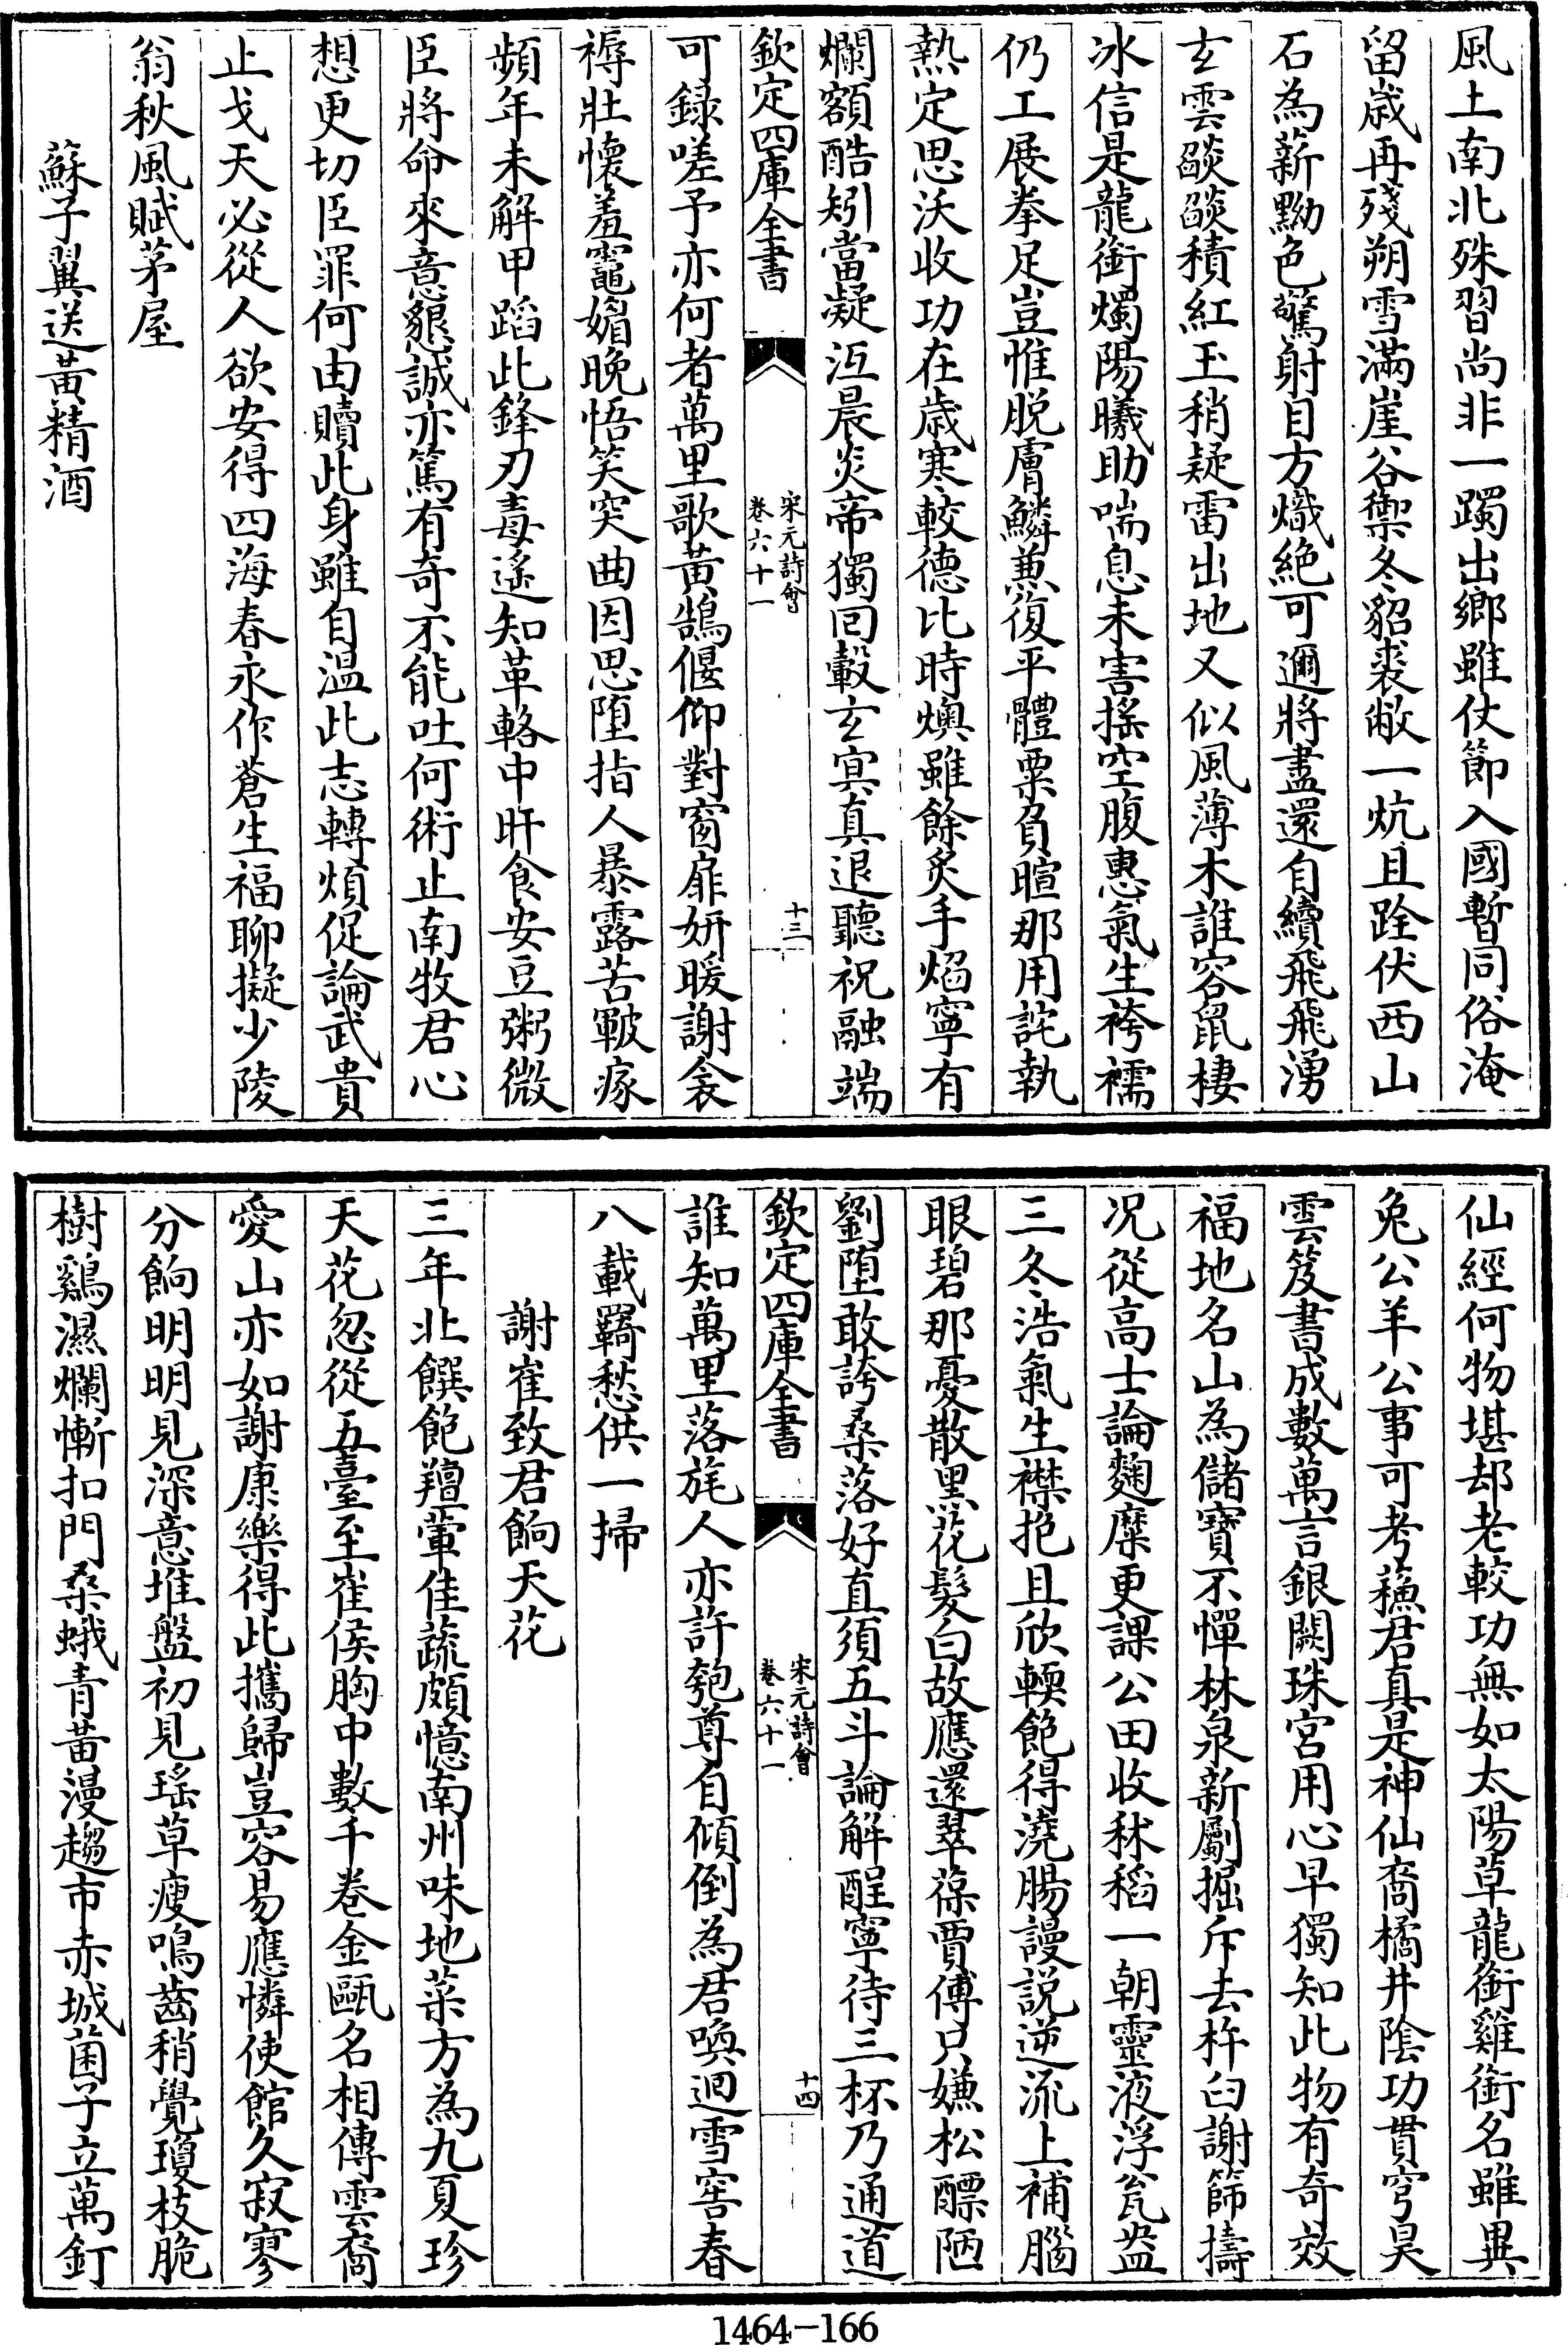 風土南北殊習尚非一躅出鄉雖仗節入國暫同俗淹
留歲再殘朔雪滿崖谷禦冬貂裘敝一炕且跧伏西山
石為薪黝色驚射目方熾絕可邇將盡還自續飛飛湧
玄雲燄燄積紅玉稍疑雷出地又似風薄木誰容鼠棲
冰信是龍銜燭陽曦助喘息未害搖空腹惠氣生袴襦
仍工展拳足豈惟脫膚鱗兼復平體粟負暄那用詫執
熱定思沃收功在歲寒較德比時燠雖餘炙手焰寧有
爛額酷矧當凝沍晨炎帝獨回轂玄㝠真退聽祝融端
欽定四庫全書
宋元詩會
卷六十一
十三
可録嗟予亦何者萬里歌黃鵠偃仰對窗扉妍暖謝衾
褥壯懷羞竈媚晚悟笑突曲因思墮指人暴露苦皸瘃
頻年未解甲蹈此鋒刃毒遙知革輅中旰食安豆粥微
臣將命來意懇誠亦篤有奇不能吐何術止南牧君心
想更切臣罪何由贖此身雖自溫此志轉煩促論武貴
止戈天必從人欲安得四海春永作蒼生福聊擬少陵
翁秋風賦茅屋
蘇子翼送黃精酒
仙經何物堪却老較功無如太陽草龍銜雞銜名雖異
兔公羊公事可考蘓君真是神仙裔橘井陰功貫穹昊
雲笈書成數萬言銀闕珠宮用心早獨知此物有奇效
福地名山為儲寶不憚林泉新劚掘斥去杵臼謝篩擣
况從高士論麴糵更課公田收秫稻一朝靈液浮瓮盎
三冬浩氣生襟抱且欣輭飽得澆腸謾說逆流上補腦
眼碧那憂散黑花髮白故應還翠葆賈傅只嫌松醪陋
劉墮敢誇桑落好直須五斗論解酲寧待三杯乃通道
欽定四庫全書
宋元詩會
卷六十一
十四
誰知萬里落旄人亦許匏尊自傾倒為君喚迴雪窖春
八載羇愁供一掃
謝崔致君餉天花
三年北饌飽羶葷佳蔬頗憶南州味地菜方為九夏珍
天花忽從五臺至崔侯胸中數千卷金甌名相傳雲裔
愛山亦如謝康樂得此攜歸豈容易應憐使館久寂寥
分餉明明見深意堆盤初見瑤草瘦鳴齒稍覺瓊枝脆
樹鷄濕爛慚扣門桑蛾青黃漫趨市赤城菌子立萬釘
1464-166